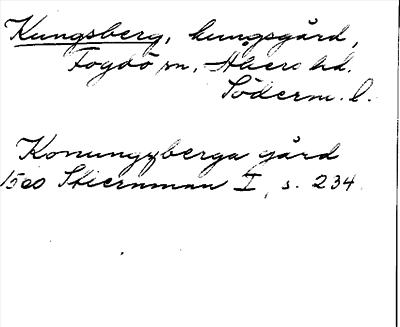 Kungsberg, kungsgård,
Fogdö sn, Åkers hd.
Söderm. l.
Konungzberga gård
1500 Stiernman I, s. 234